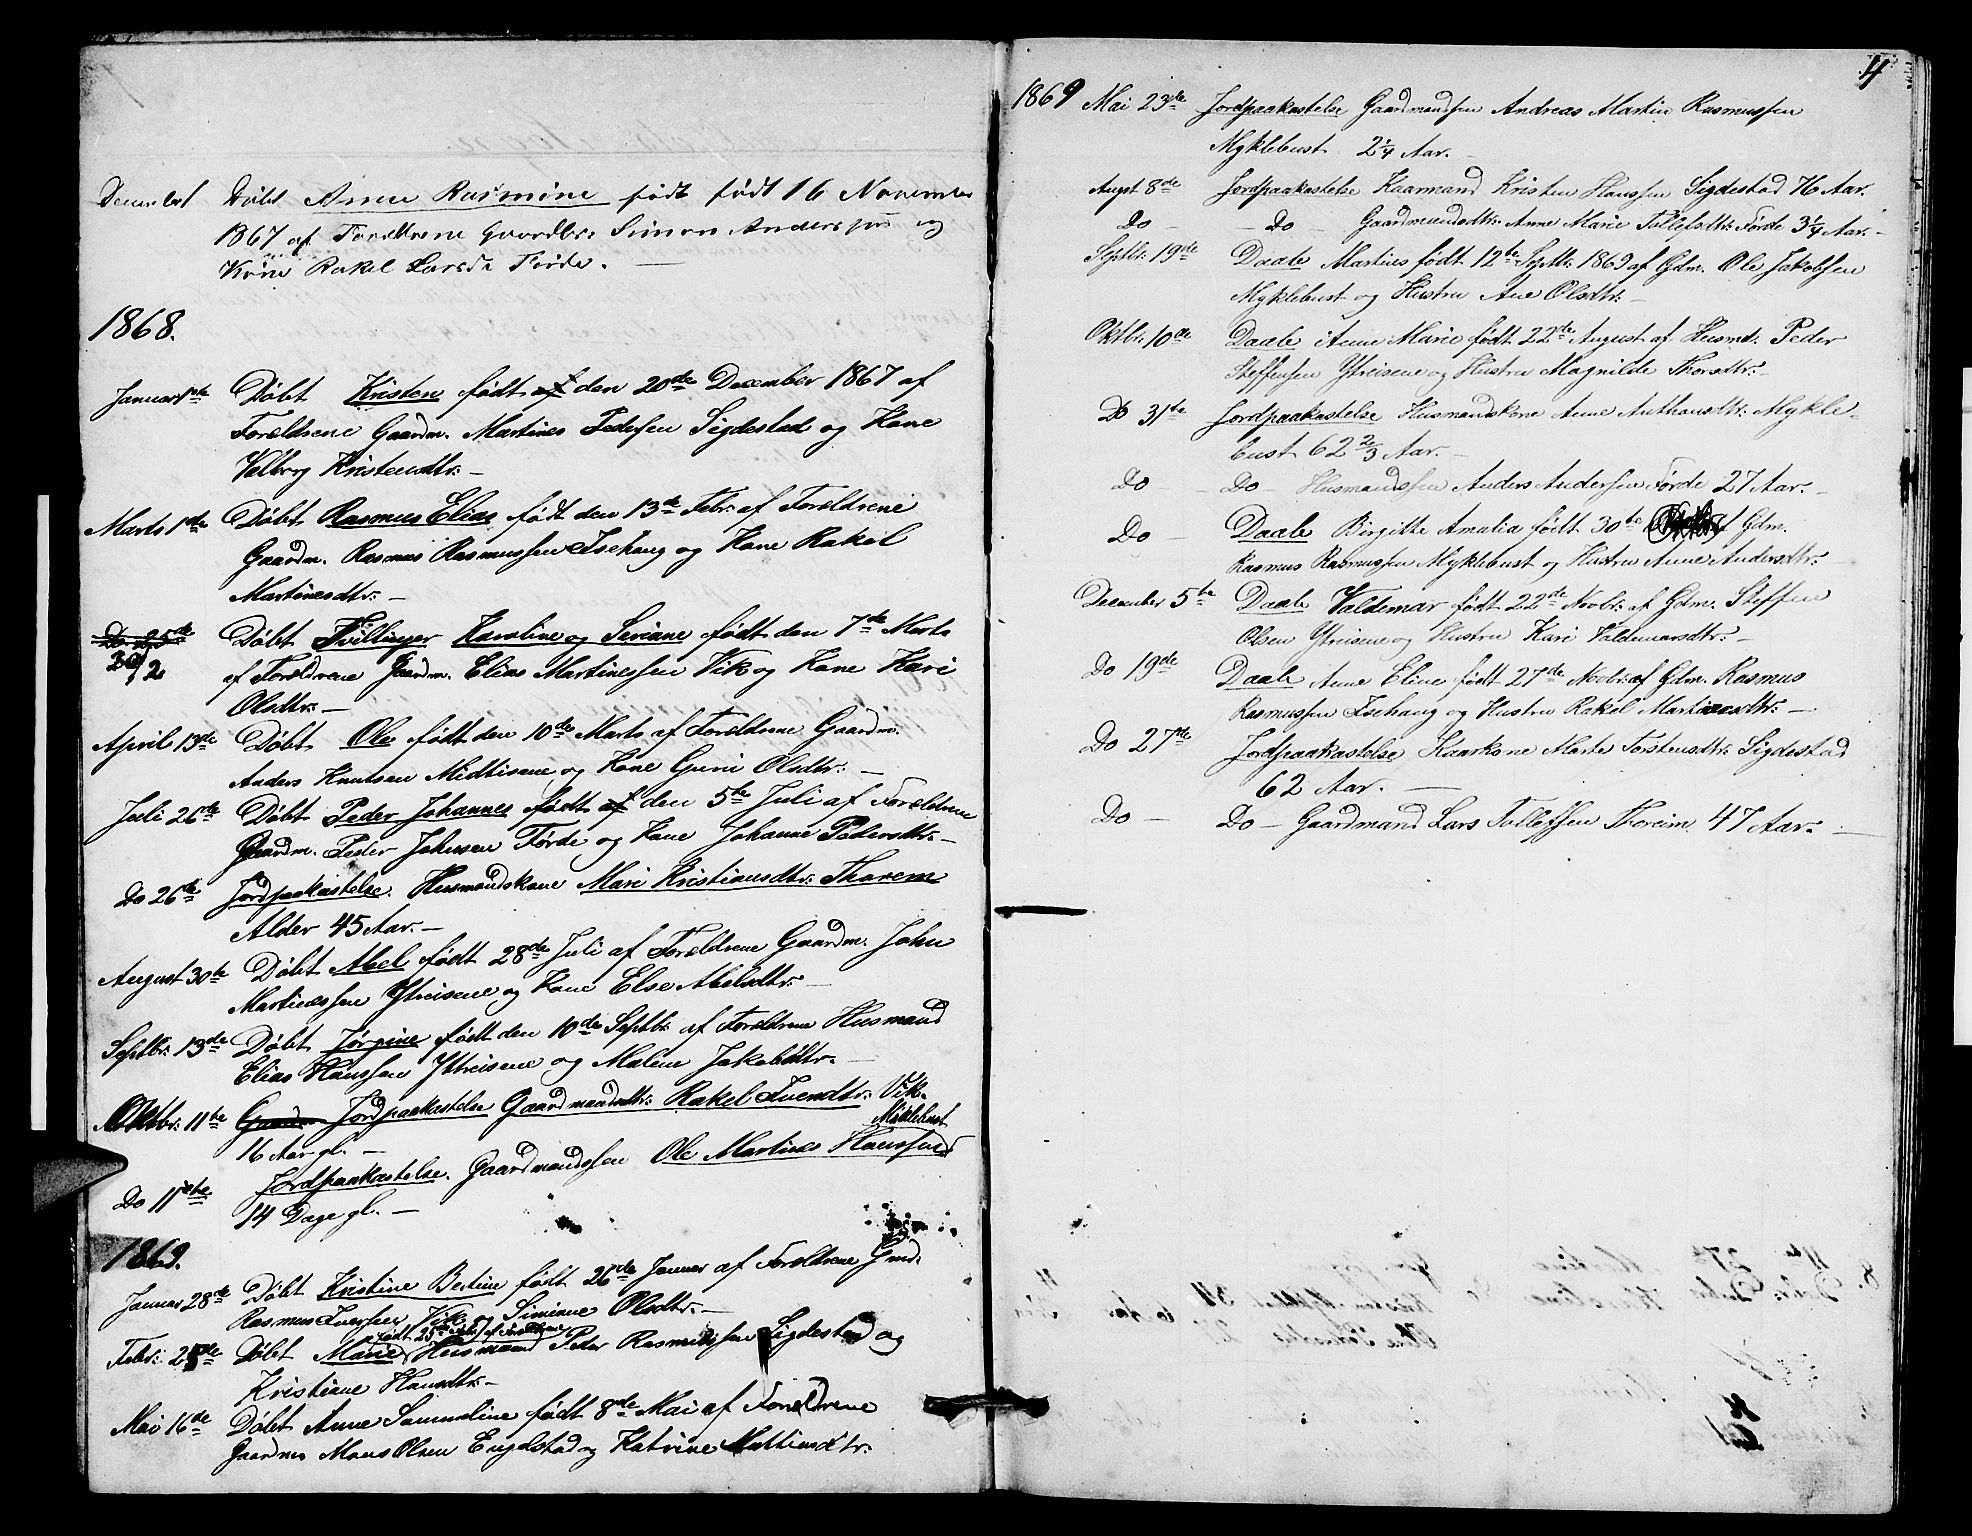 Decemb 1 Døbt Anne Rasmine født født 16 November
1867 af Forældrene Gaardbr. Simon Anderssøn og
Kone Rakel Larsdr Førde.
1868.
Januar 1ste Døbt Kristen født af den 20de December 1867 af
Forældrene Gaardm. Martines Pedersen Sigdestad og Kone
Valborg Kristensdtr.
Marts 1ste Døbt Rasmus Elias født den 13de Febr. af Forældrene
Gaardm. Rasmus Rasmussen Isehaug og Kone Rakel
Martinesdtr.
Do 25de Døbt Tvillinger Karoline og Seriane født den 7de Marts
af Forældrene Gaardm. Elias Martinessen Vik og Kone Kari
Olsdtr.
April 13de Døbt Ole født den 10de Marts af Forældrene Gaardm.
Anders Knutsen Midtisene og Kone Guri Olsdtr.
Juli 26de Døbt Peder Johannes født af den 5te Juli af Forældrene
Gaardm. Peder Johnsen Førde og Kone Johanne Pedersdtr.
Do 26de Jordpaakastelse. Husmandskone Mari Kristiansdtr. Thorem
Alder 45 Aar.
August 30te Døbt Abel født 28de Juli af Forældrene Gaardm. John
Martinessen Ytreisene og Kone Else Abelsdtr.
Septbr. 13de Døbt Jørgine født den 10de Septbr. af Forældrene Husmand
Elias Hanssen Ytreisene og Malene Jakobsdtr.
Oktbr. 11te Gaardm Jordpaakastelse Gaardmandsdtr. Rakel Iversdtr. Vik.
16 Aar gl.
Myklebust
Do 11te Jordpaakastelse. Gaardmandssen Ole Martines Hanssen
14 Dage gl.
1869.
Januar 28de Døbt Kristine Bertine født 26de Januar af Forældrene Gmd.
Rasmus Iverssen Vik og Simiane Olsdtr.
født 25de Febr. af Forældrene
Febr. 28de Døbt Marie Husmand Peter Rasmussen Sigdestad og
Kristiane Hansdtr.
Mai 16de Døbt Anne Sammeline født 8de Mai af Forældrene
Gaardm Mons Olsen Engelstad og Katrine Mattiasdtr.
4
1869 Mai 23de Jordpaakastelse Gaardmandsen Andreas Martin Rasmussen
Myklebust 2 1/4 Aar.
Augst 8de Jordpaakastelse Kaarmand Kristen Hanssen Sigdestad 76 Aar.
Do - Do Gaardmandsdtr. Anne Marie Tollefsdtr. Førde 3 1/4 Aar.
Septbr. 19de Daab Martines født 12te Septbr. 1869 af Gdm. Ole Jakobsen
Myklebust og Hustru Ane Olsdtr.
Oktbr. 10de Daab Anne Marie født 22de August af Husmd. Peder
Steffensen Ytreisene og Hustru Magnilde Thorsdtr.
Do 31te Jordpaakastelse Husmandskone Anne Anthonsdtr. Mykle-
bust 62 2/3 Aar.
Do - Do - Husmandssen Anders Andersen Førde 27 Aar.
Do - Daab Birgitte Amalia født 30te af Gdm.
Rasmus Rasmussen Myklebust og Hustru Anne Andersdtr.
December 5te Daab Valdemar født 22de Novbr. af Gdm. Steffen
Olsen Ytreisene og Hustru Kari Valdemarsdtr.
Do 19de Daab Anne Eline født 27de Novbr. af Gdm. Rasmus
Rasmussen Isehaug og Hustru Rakel Martinesdtr.
Do 27de Jordpaakastelse Kaarkone Marte Torstensdtr. Sigdestad
62 Aar.
Do - Do - Gaardmand Lars Tollefsen Thoreim 47 Aar.